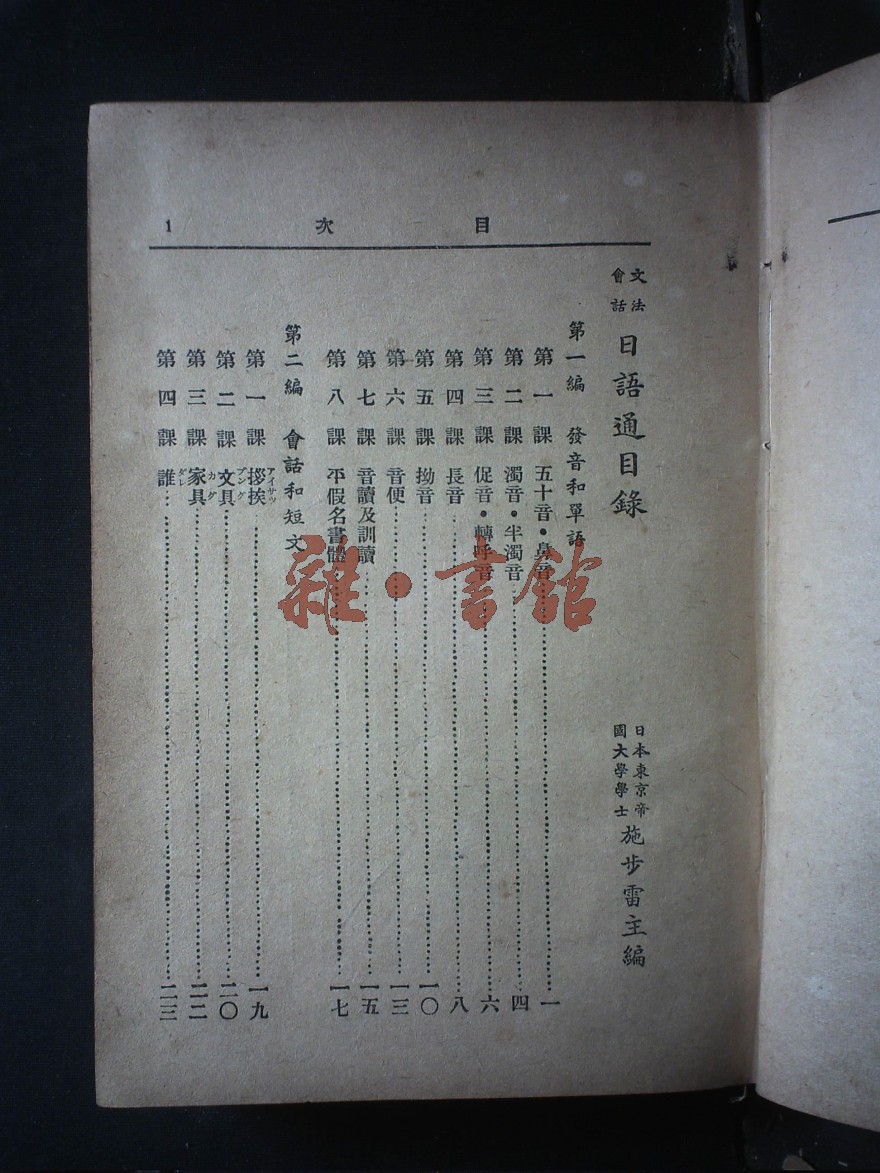 目次 1
文法會話 日語通目錄 日本東京帝國大學學士 施步雷主編
第一編 發音和單語
第一課 五十音・鼻音……一
第二課 濁音・半濁音……四
第三課 促音・轉呼音……六
第四課 長音……八
第五課 拗音……一〇
第六課 音便……一三
第七課 音讀及訓讀……一五
第八課 平假名書體……一七
第二編 會話和短文
第一課 挨拶アイサツ……一九
第二課 文具ブング……二〇
第三課 家具カグ……二二
第四課 誰ダレ……二三
雜・書館